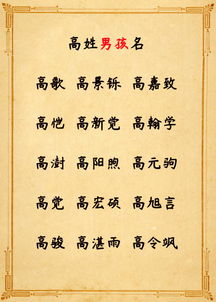 高姓男孩名
高歌 高景铄 高嘉致
高恺 高新觉 高翰学
高澍 高阳煦 高元驹
高觉 高宏硕 高旭言
高骏 高湛雨 高令飒